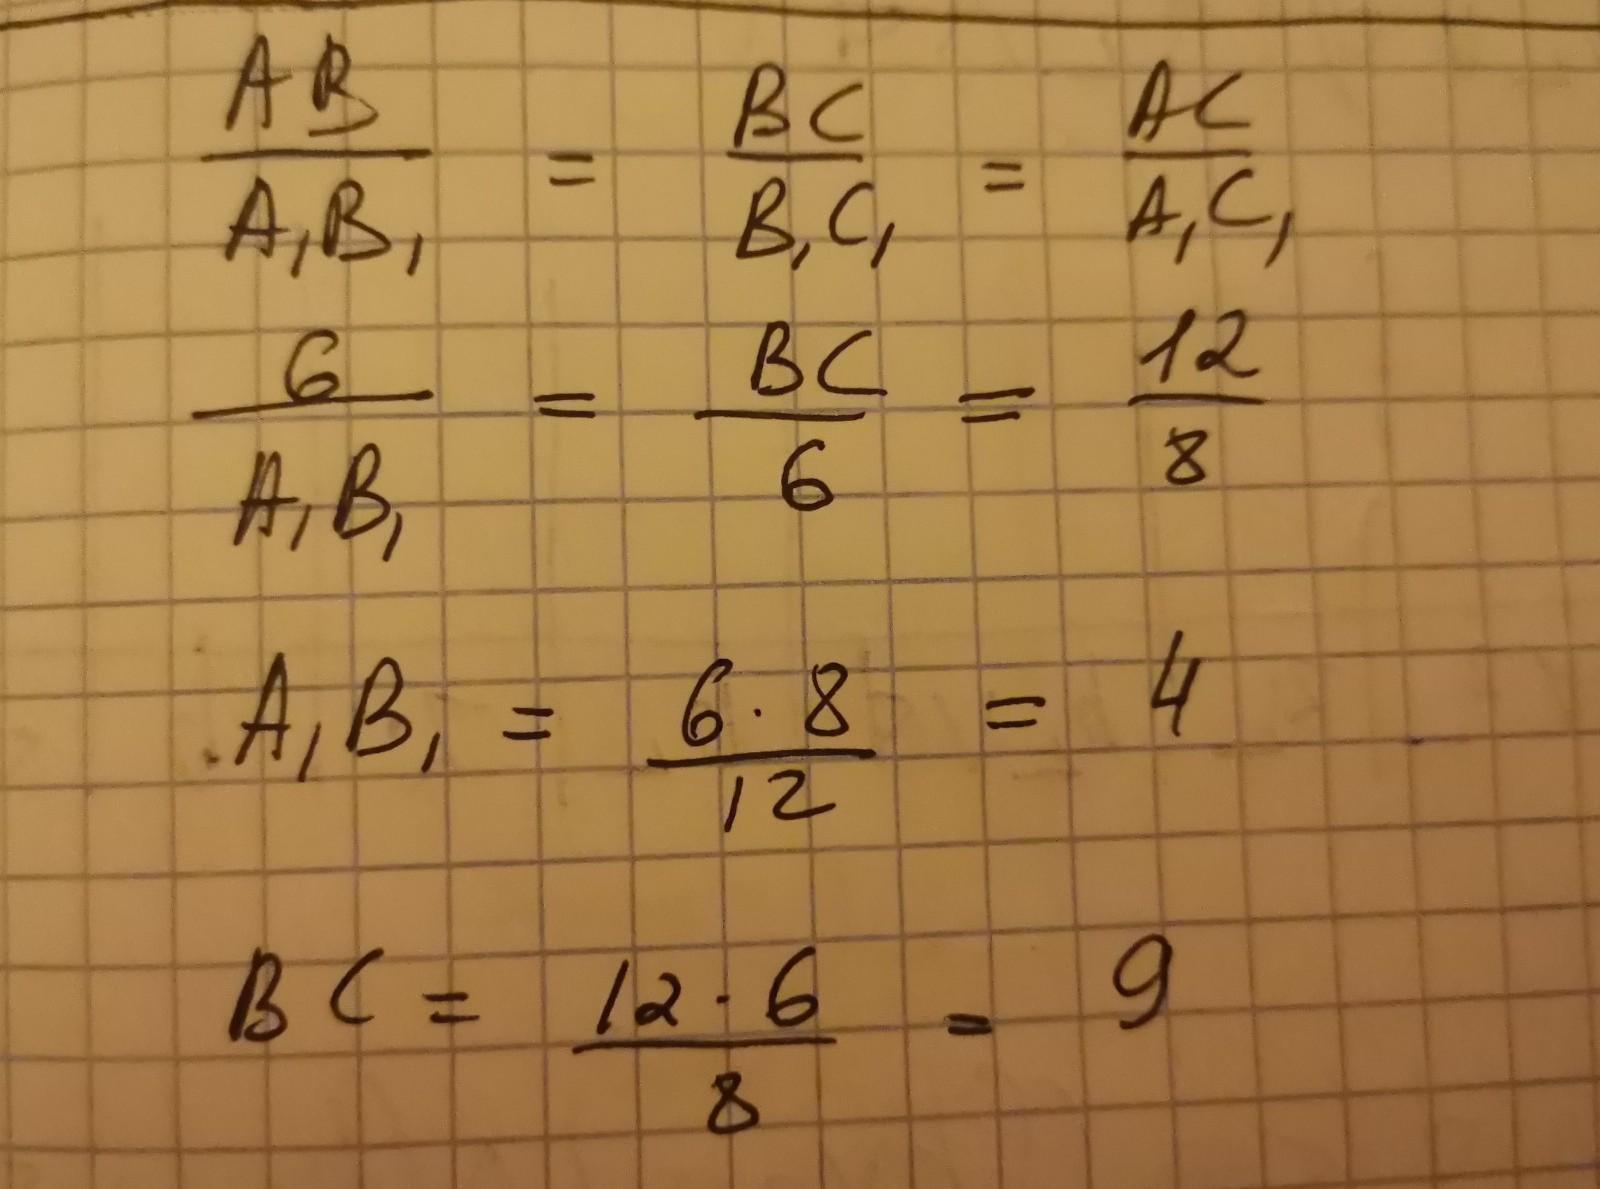 AB/A₁B₁ = BC/B₁C₁ = AC/A₁C₁
6/A₁B₁ = BC/6 = 12/8
A₁B₁ = 6·8/12 = 4
BC = 12·6/8 = 9